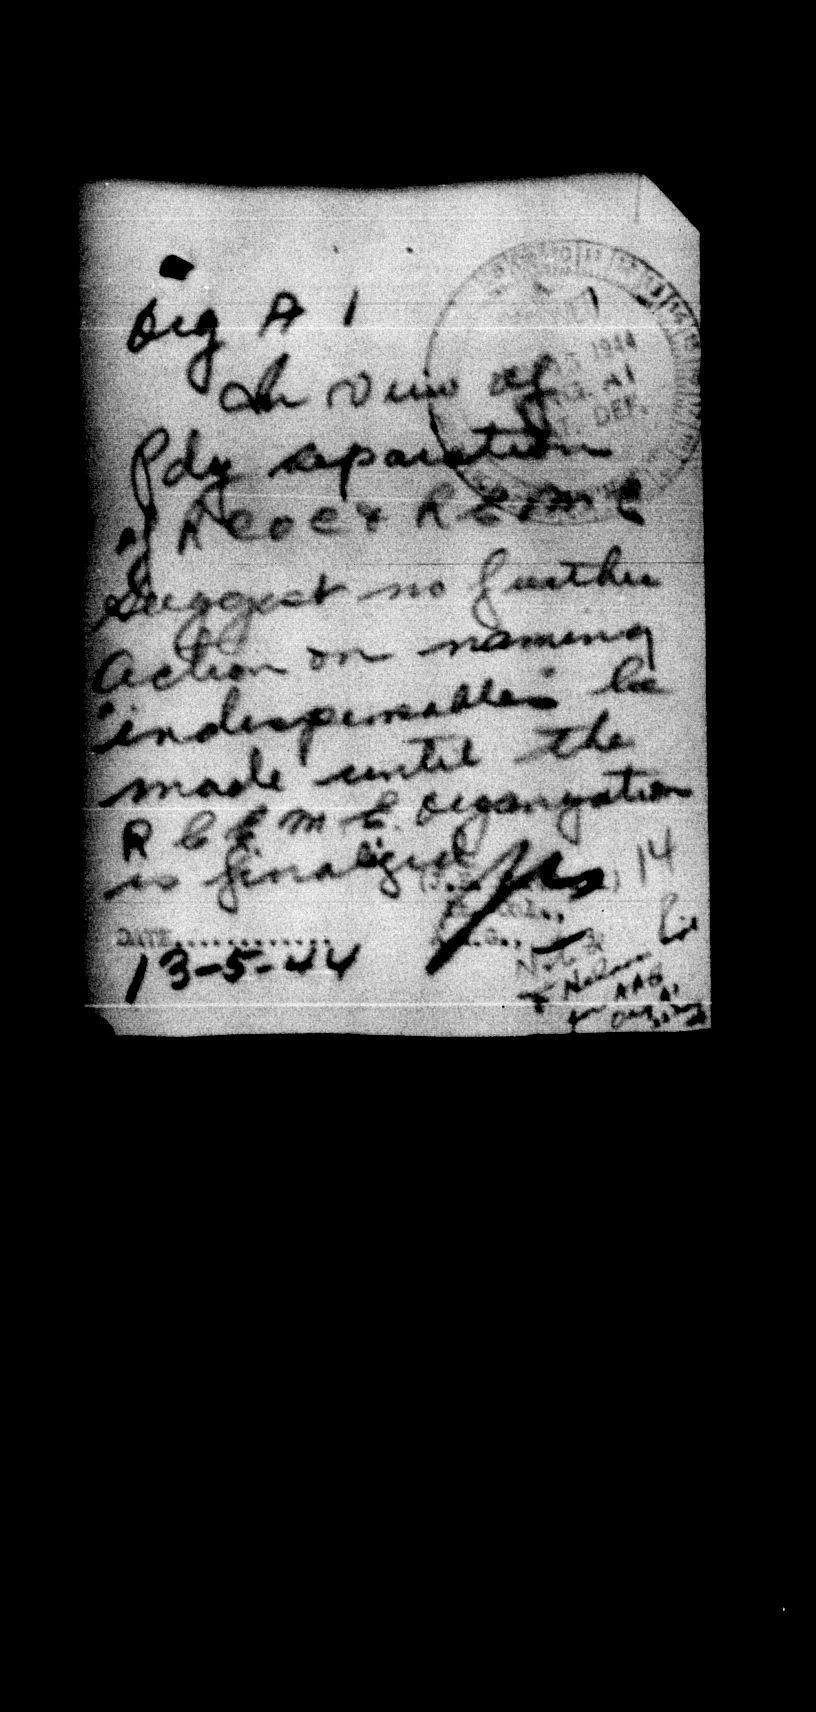 Org A 1
In view of
Pdg separation
of RCOC & RCEME
Suggest no further
action on naming
"indispensables" be
made until the
RCEME organization
is finalized
14
DATE............
13-5-44
1944
ORG. A1